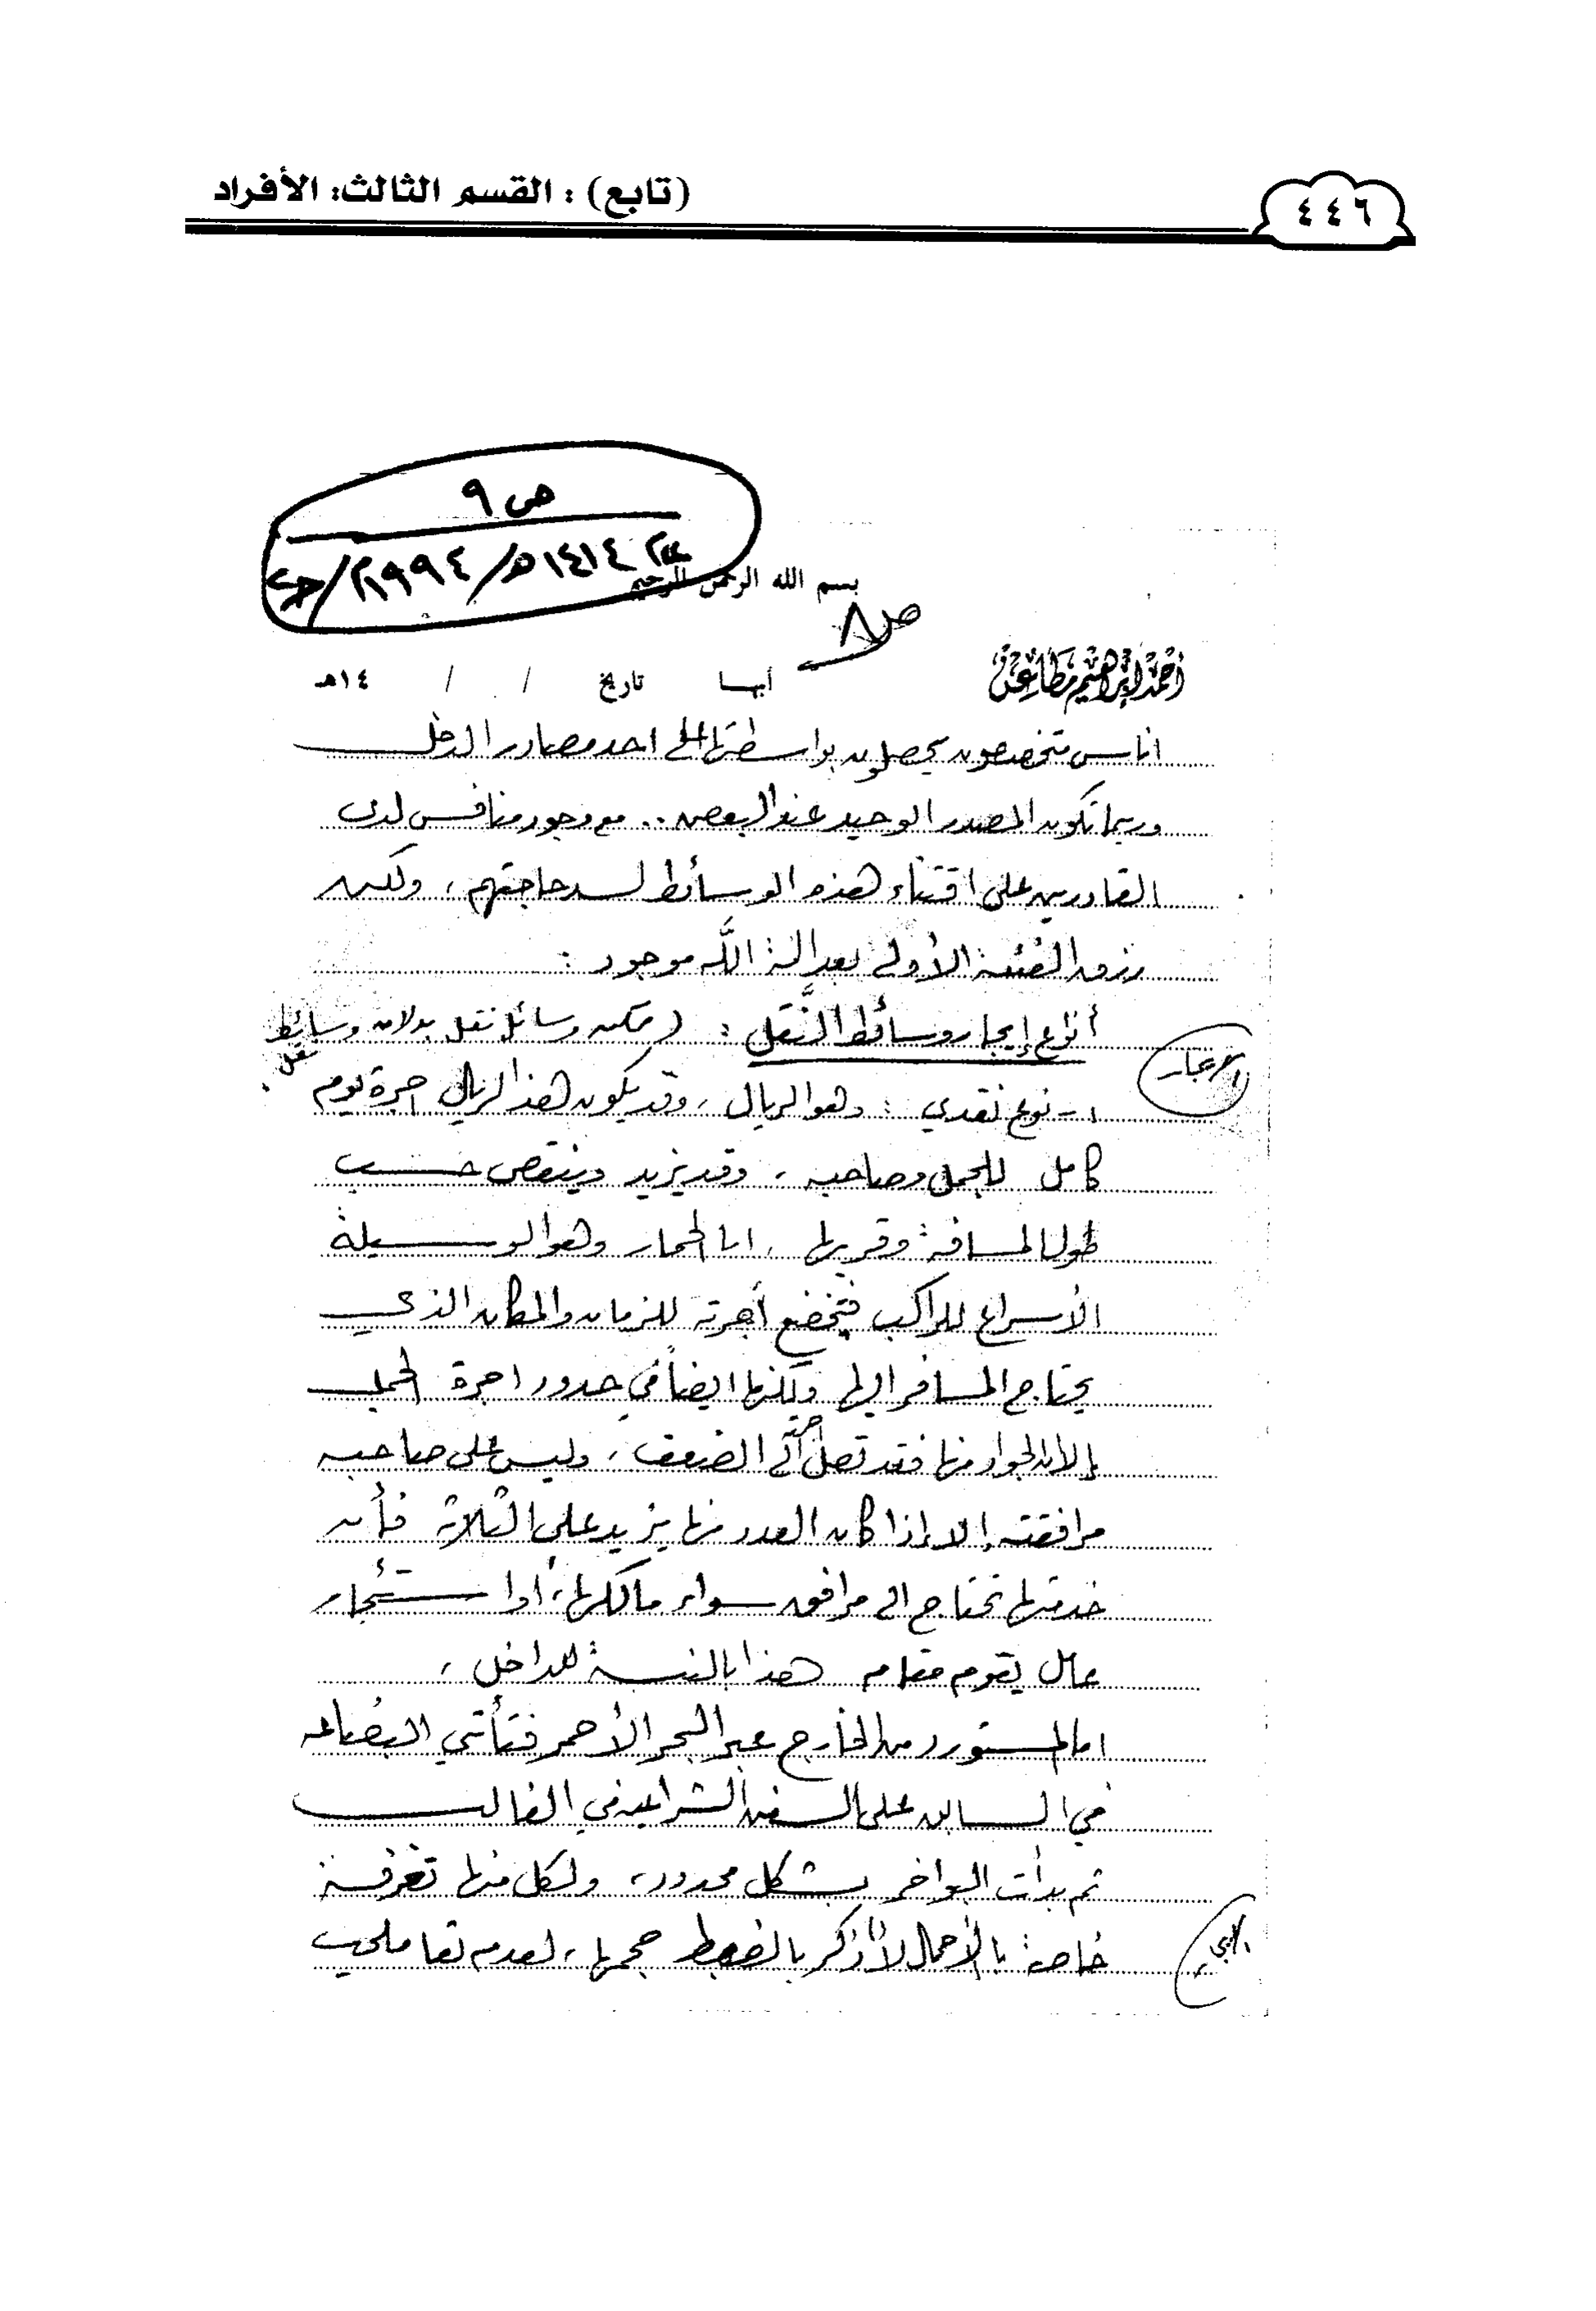 ٤٤٦
(تابع) : القسم الثالث: الأفراد
ص ٩
١٤١٤هـ/١٩٩٤م
بسم الله الرحمن الرحيم
ص٨
أحمد إبراهيم مطاعن
أبها تاريخ / / ١٤هـ
اناس متخصصون يحصلون بواسطتها على احد مصادر الدخل
وربما تكون المصدر الوحيد عند البعض .. مع وجود منافس لدى
القادرين على اقتناء هذه الوسائط لسد حاجتهم، ولكن
رزق الفئة الأولى بعد الله موجود :
أنواع إيجار وسائط النقل : ( يمكن وسائل نقل بدلا من وسائط
نقل
الايجار
١- نوع نقدي : وهو الريال، وقد يكون هذا الريال اجرة يوم
كامل للجمل وصاحبه، وقد يزيد وينقص حسب
طول المسافة وقربها، اما الحمار وهو الوسيلة
الأسرع للراكب فتخضع أجرته للزمان والمكان الذي
يحتاج المسافر اليها ولكنها ايضاً في حدود اجرة الجمل
إلا ان الجواد منها فقد تصل أجرته إلى الضعف، وليس على صاحبه
مرافقته إلا إذا كان العدد منها يزيد على الثلاثة فأن
خدمتها تحتاج الى مرافق سواء مالكها، أو استئجار
عامل يقوم مقامه هذا بالنسبة للداخل،
اما المستورد من الخارج عبر البحر الأحمر فتأتي البضاعه
في السابق على السفن الشراعيه في الغالب
ثم بدأت البواخر بشكل محدود، ولكل منها تعرفة
خاصة بالأحمال لا أذكر بالضبط حجمها، لعدم تعاملي